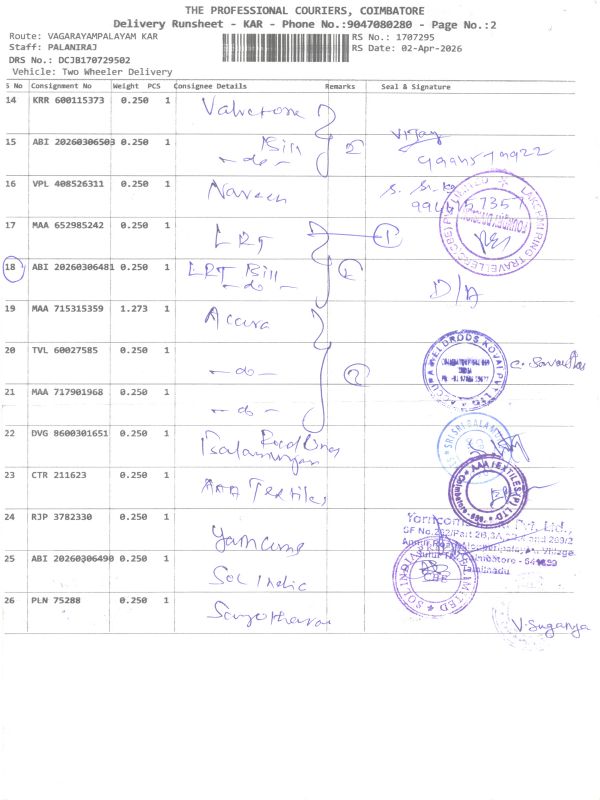 THE PROFESSIONAL COURIERS, COIMBATORE
Delivery Runsheet - KAR - Phone No.:9047080280 - Page No.:2
Route: VAGARAYAMPALAYAM KAR
RS No.: 1707295
Staff: PALANIRAJ
RS Date: 02-Apr-2026
DRS No.: DCJB170729502
Vehicle: Two Wheeler Delivery
S No Consignment No Weight PCS Consignee Details Remarks Seal & Signature
14 KRR 600115373 0.250 1
15 ABI 20260306503 0.250 1 Bill
-do- 2 Vijay
16 VPL 408526311 0.250 1 Naveen
17 MAA 652985242 0.250 1 LRT 1
18 ABI 20260306481 0.250 1 LRT Bill
-do- D/A
19 MAA 715315359 1.273 1 Accura
20 TVL 60027585 0.250 1 -do-
21 MAA 717901968 0.250 1 -do-
22 DVG 8600301651 0.250 1
23 CTR 211623 0.250 1 AAA Textiles
AAA TEXTILES (P) LTD
24 RJP 3782330 0.250 1
25 ABI 20260306490 0.250 1 Sol India
SOL INDIA
LIMITED
26 PLN 75288 0.250 1
V. Suganya